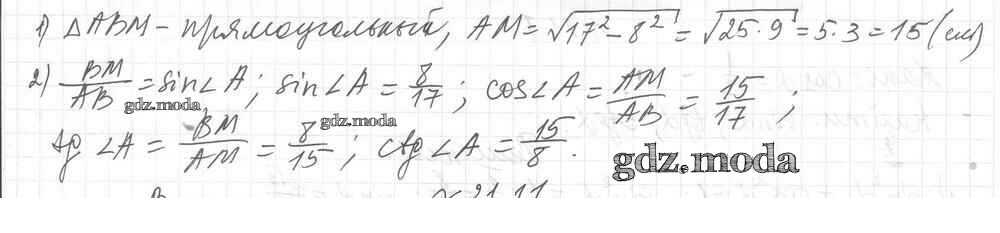 1) △ABM – прямоугольный, AM = √17² – 8² = √25 · 9 = 5 · 3 = 15 (см)
2) BM/AB = sin∠A; sin∠A = 8/17; cos∠A = AM/AB = 15/17;
gdz.moda
tg∠A = BM/AM = 8/15; ctg∠A = 15/8.
gdz.moda
gdz.moda